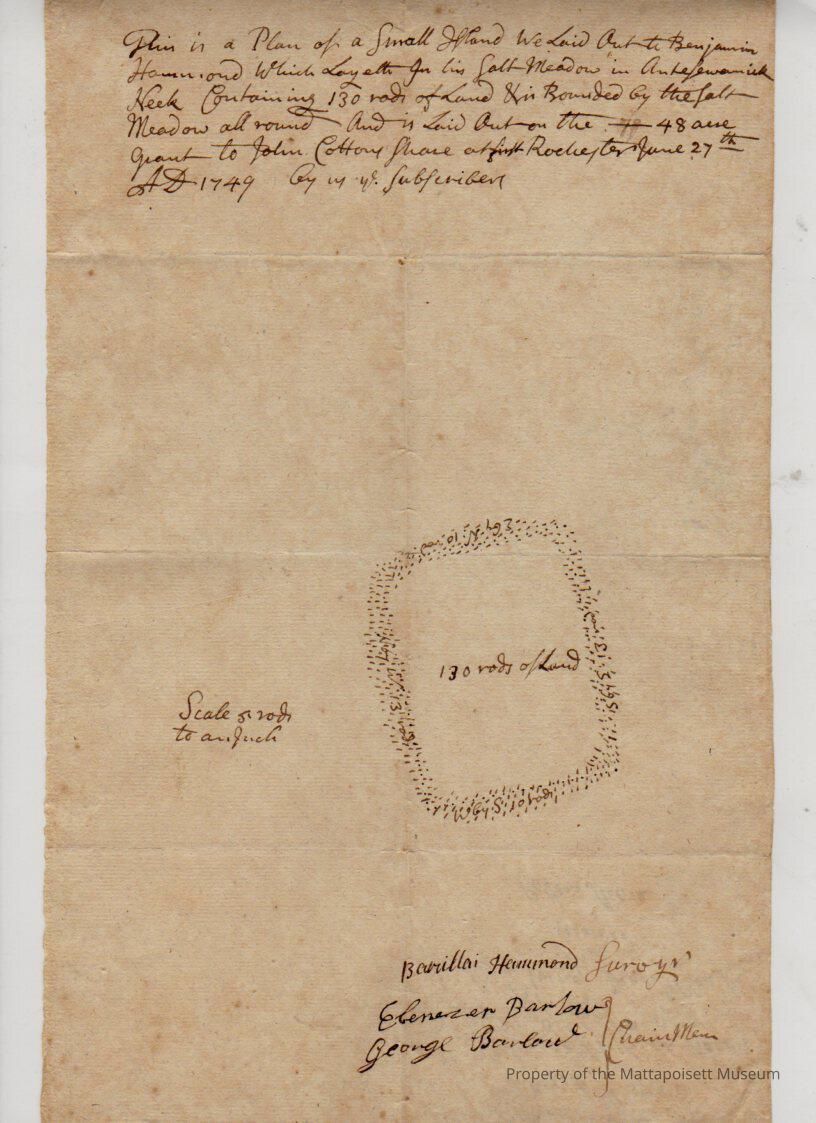 This is a Plan of a Small Island We Laid Out to Benjamin
Hammond Which Layeth In his Salt Meadow in Antesewamick
Neck Containing 130 rods of Land & is Bounded by the Salt
Meadow all round And is Laid Out on the 48 acre
grant to John Cottons Share at first Rochester June 27th
AD 1749 by us ye Subscribers
E by N 10 rods
S by E 13 rods
130 rods of Land
N by W 13 rods
Scale 5 rods
to an Inch
W by S 10 rods
Barzillai Hammond Survoyr
Ebenezer Barlow
George Barlow
Chain Men
Property of the Mattapoisett Museum